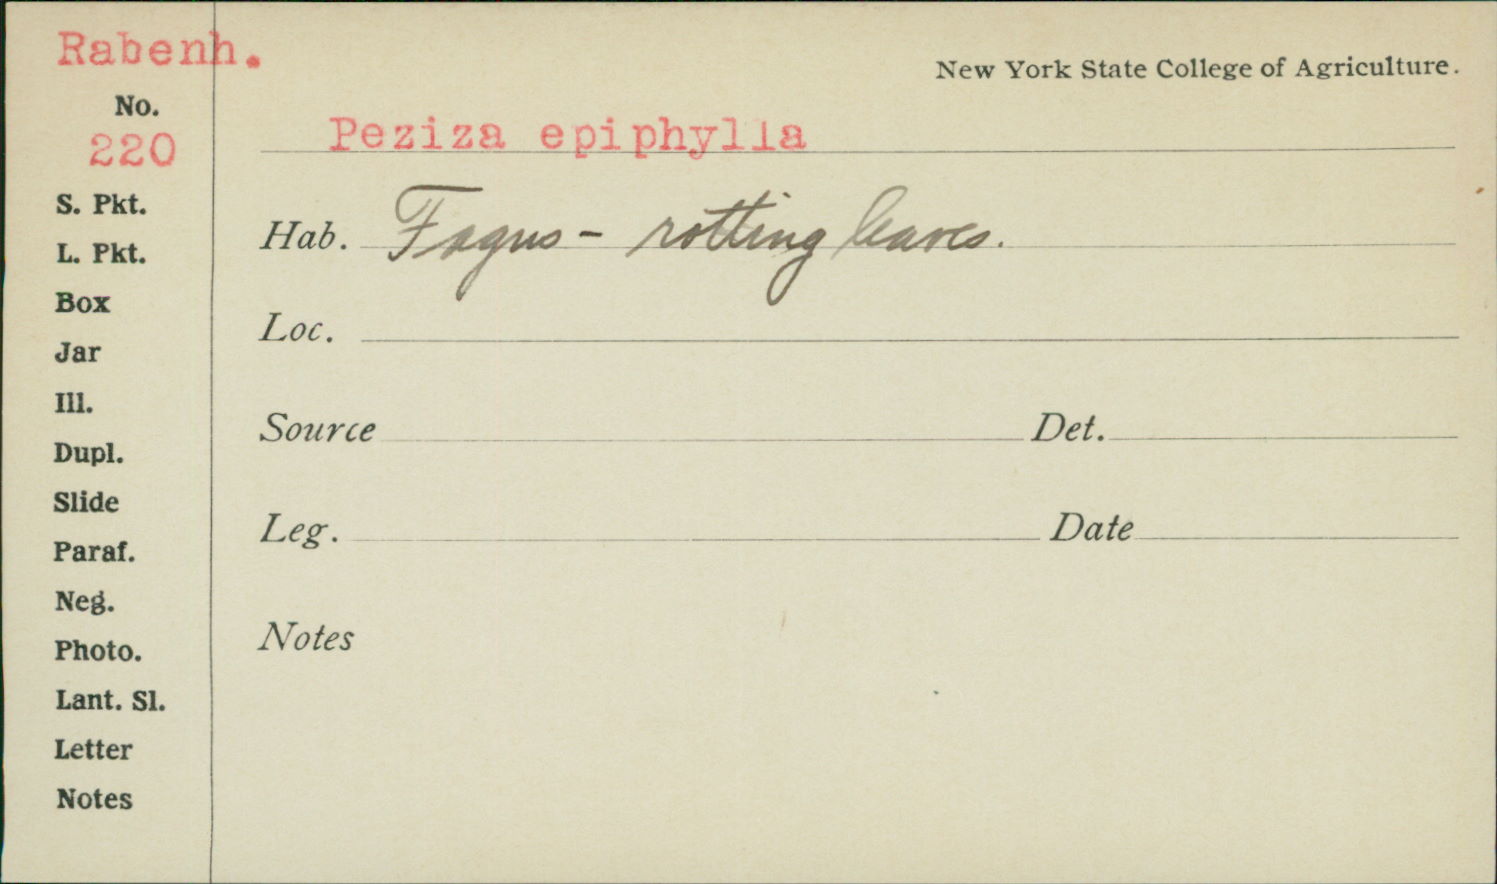 Rabenh.
New York State College of Agriculture.
No.
220
Peziza epiphylla
S. Pkt.
Hab. Fagus - rotting leaves.
L. Pkt.
Box
Loc.
Jar
Ill.
Source Det.
Dupl.
Slide
Leg. Date
Paraf.
Neg.
Notes
Photo.
Lant. Sl.
Letter
Notes